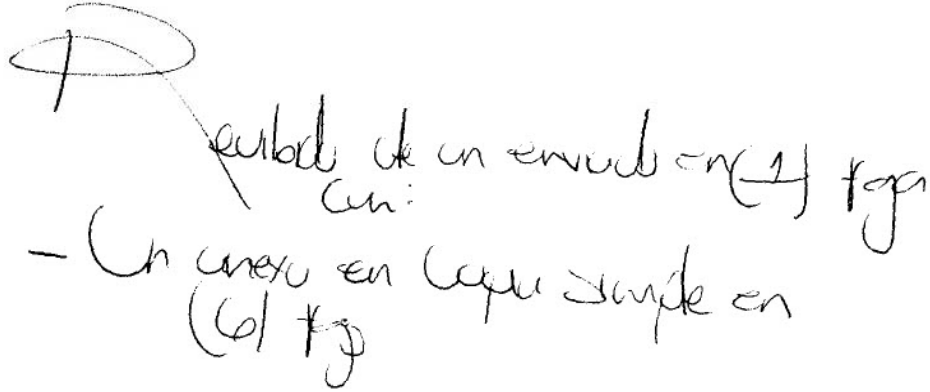 Recibido de un enviado en (1) foja
Con:
- Un anexo en copia simple en
(6) fojas